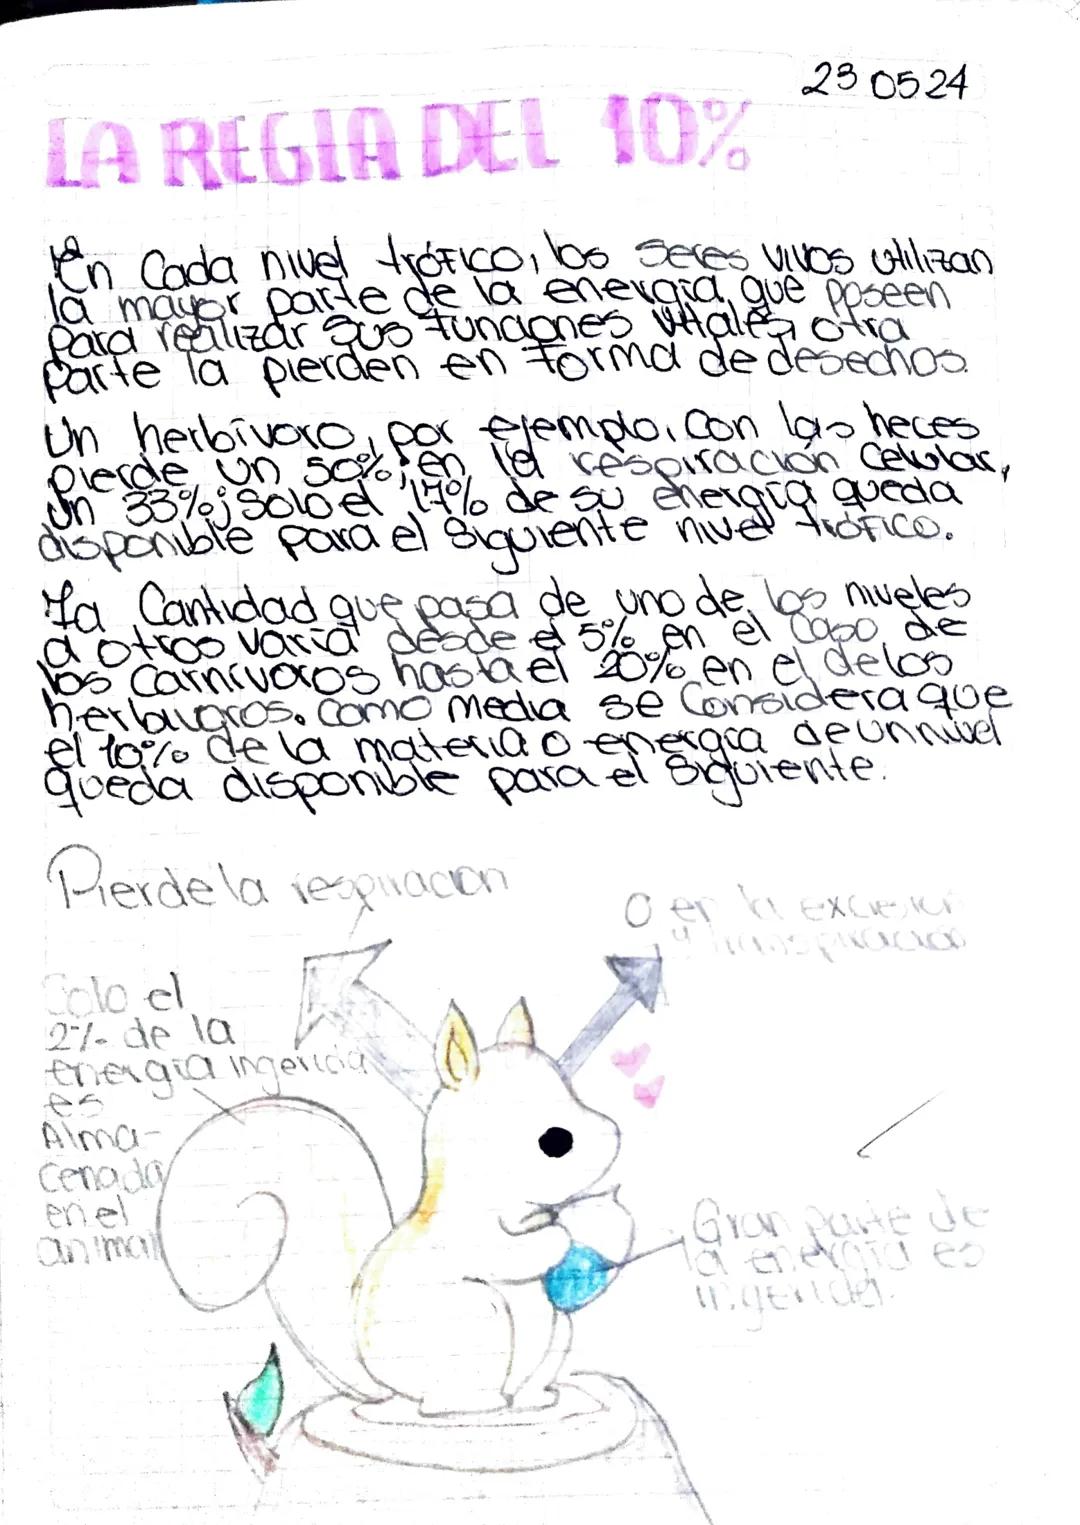 23 05 24
LA REGLA DEL 10%
En Cada nivel trófico, los seres vivos utilizan
la mayor parte de la energía que poseen
para realizar sus funciones vitales, otra
parte la pierden en forma de desechos.
Un herbívoro, por ejemplo, con las heces
pierde un 50%; en la respiración celular,
un 33%; solo el 17% de su energía queda
disponible para el siguiente nivel trófico.
La Cantidad que pasa de uno de los niveles
a otros varía desde el 5% en el caso de
los carnívoros hasta el 20% en el de los
herbívoros. Como media se considera que
el 10% de la materia o energía de un nivel
queda disponible para el siguiente.
Pierde la respiracion
O en la excreción
y transpiración
Solo el
2% de la
energía ingerida
es
Alma-
cenada
en el
animal
Gran parte de
la energía es
ingerida.